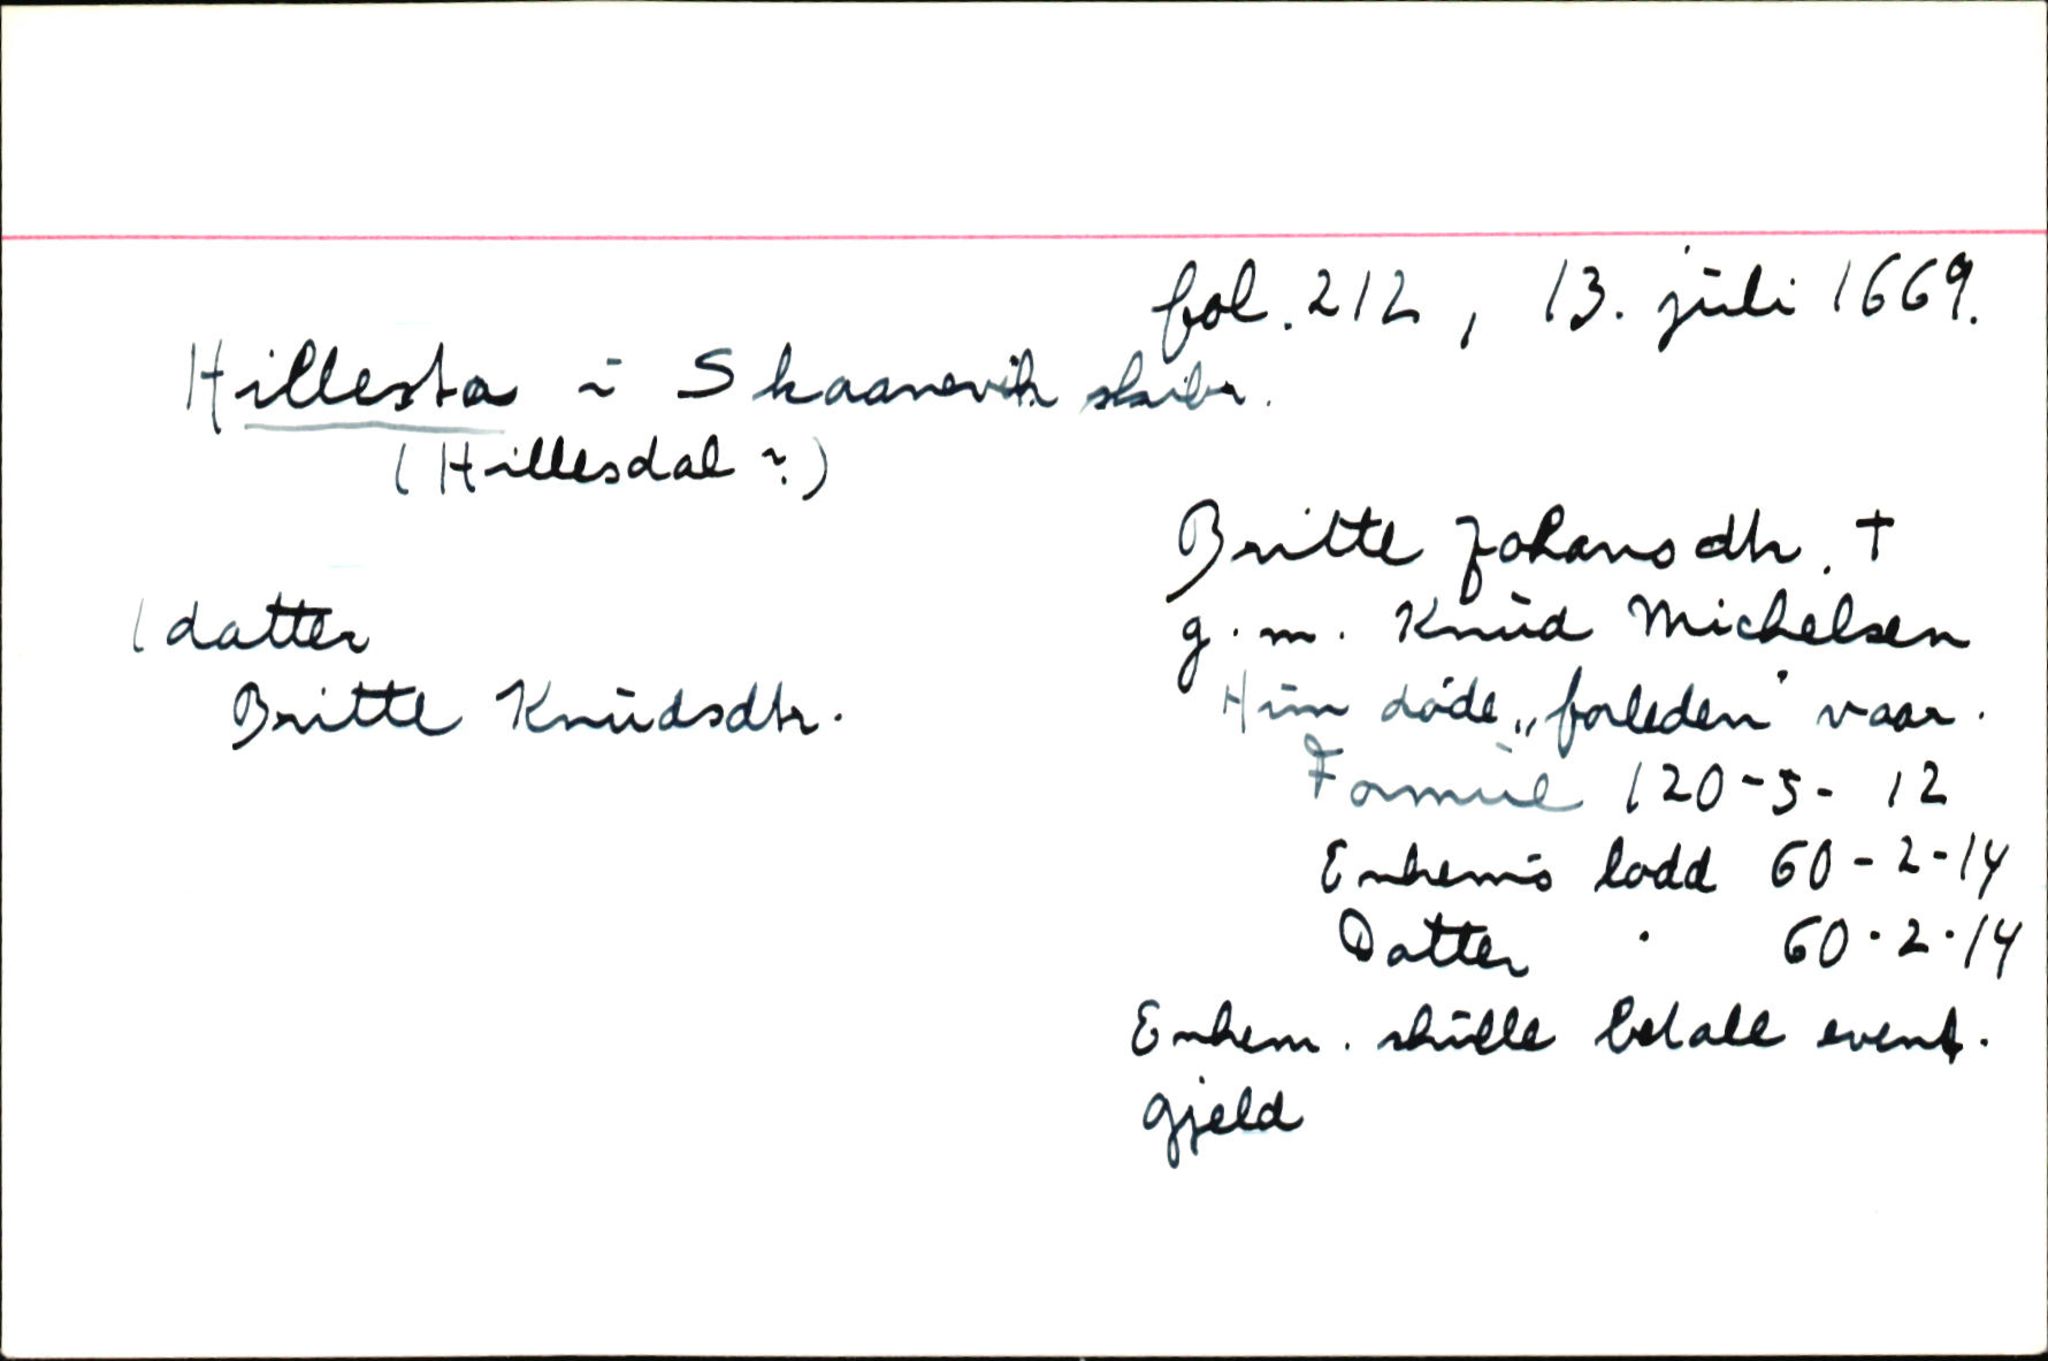 fol. 212, 13. juli 1669.
Hillesta i Skaanevik skibr.
(Hillesdal ?)
Britte Johansdtr. †
g. m. Knud Michelsen
1 datter
Britte Knudsdtr.
Hun døde „forleden" vaar.
Formue 120-5-12
Enkem's lodd 60-2-14
Datter " 60-2-14
Enkem. skulle betale event.
gjeld